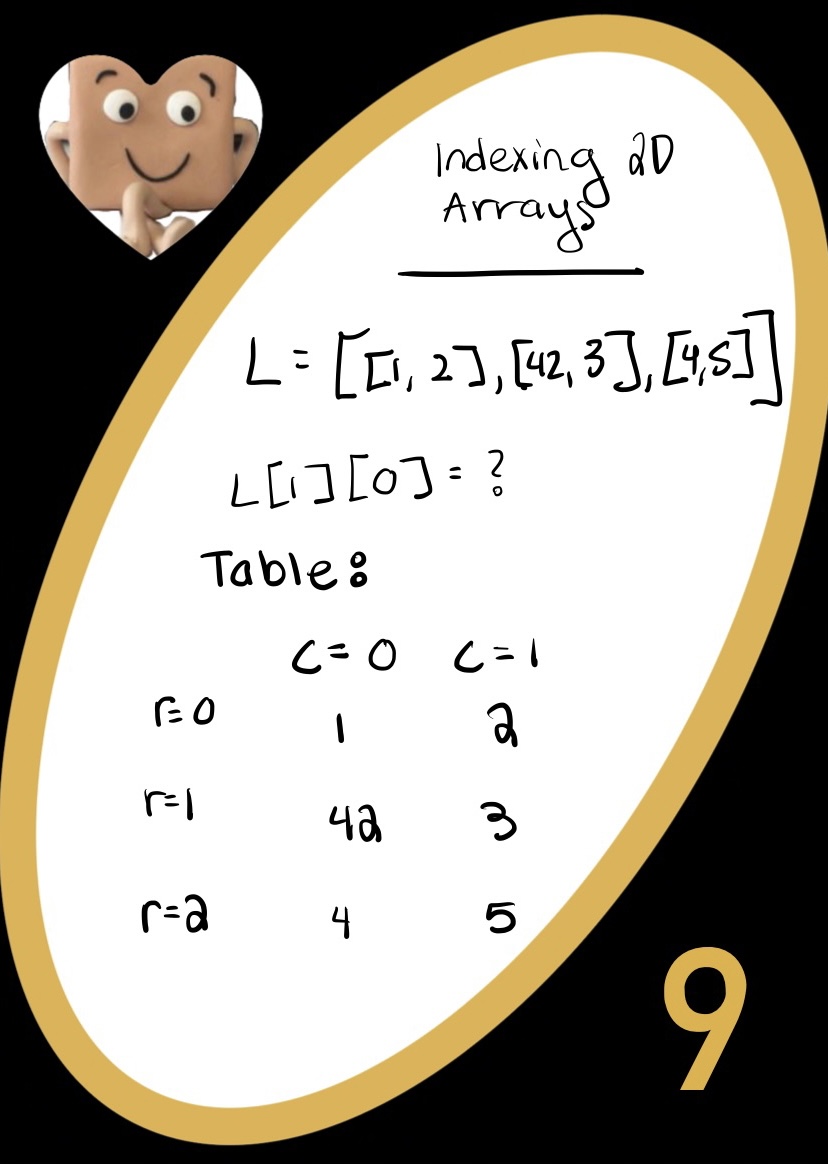 Indexing 2D
Arrays
L = [[1, 2], [42, 3], [4,5]]
L[1][0] = ?
Table:
c = 0 c = 1
r = 0 1 2
r = 1 42 3
r = 2 4 5
9